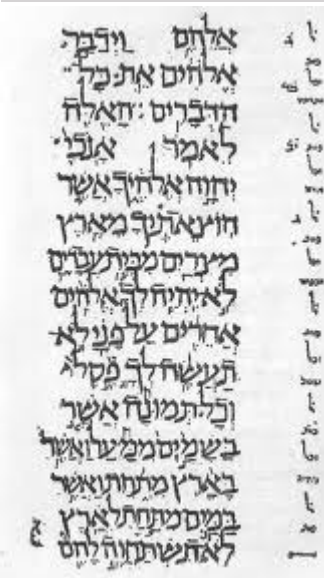 אלהים וידבר
אלהים את כל
הדברים האלה
לאמר אנכי
יהוה אלהיך אשר
הוצאתיך מארץ
מצרים מבית עבדים
לא יהיה לך אלהים
אחרים על פני לא
תעשה לך פסל
וכל תמונה אשר
בשמים ממעל ואשר
בארץ מתחת ואשר
במים מתחת לארץ
לא תשתחוה להם